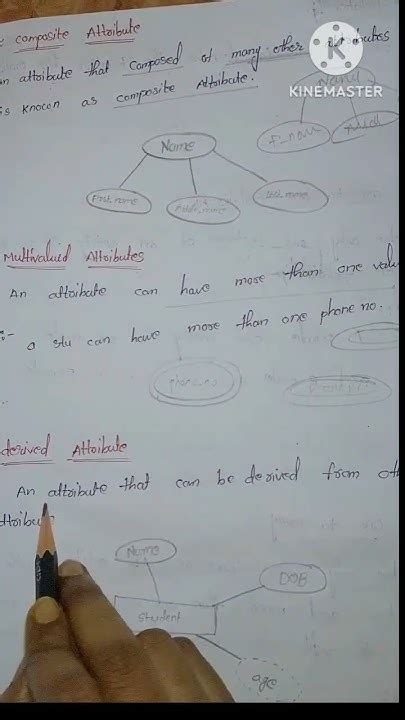 composite Attribute
an attribute that composed of many other attributes
is known as composite Attribute.
KINEMASTER
Name
First_name
Middle_name
Last_name
Multivalued Attributes
An attribute can have more than one valu
a stu can have more than one phone no.
phone_no
derived Attribute
An attribute that can be derived from oth
attribut
Name
DOB
Student
age